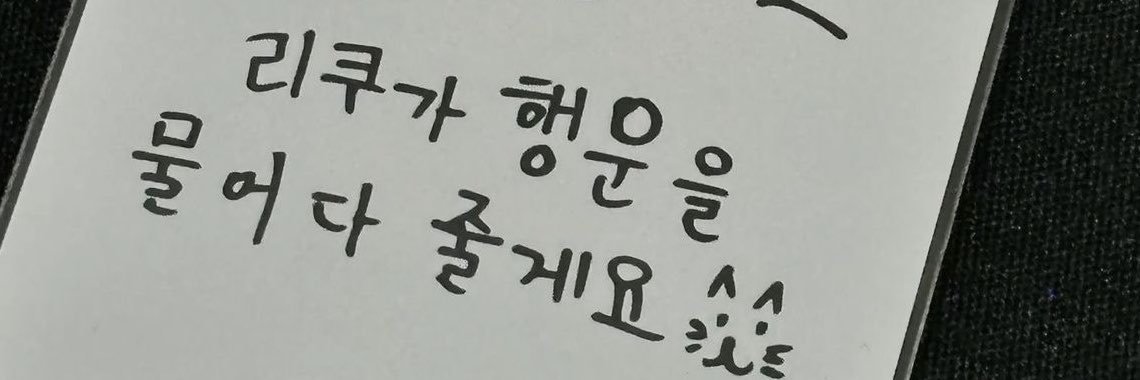 리쿠가 행운을
물어다 줄게요